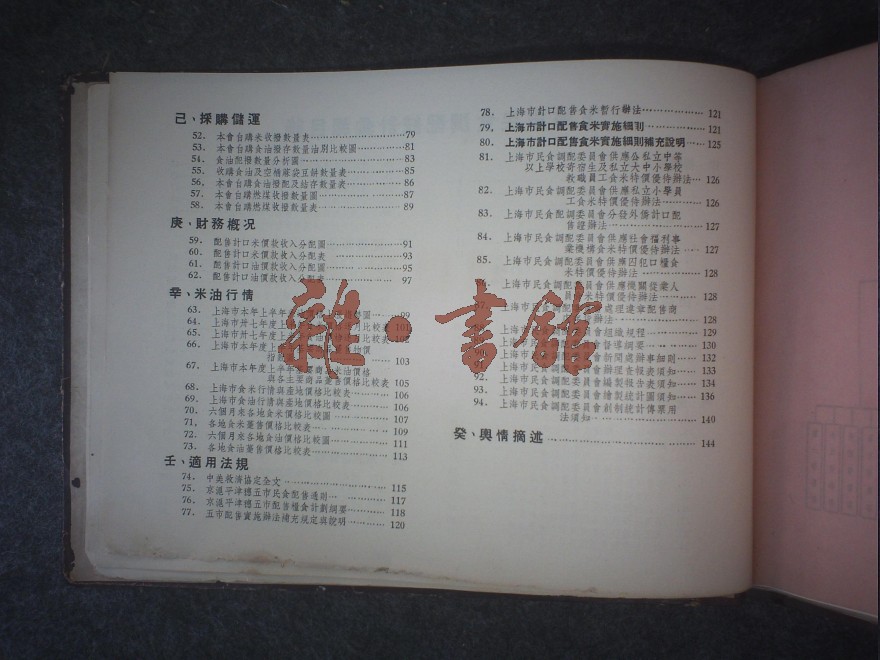 己、採購儲運
52. 本會台購米收撥數量表 79
53. 本會台購食油撥存數量油別比較圖 81
54. 食油配撥數量分析圖 83
55. 收購食油及空桶蔴袋豆餅數量表 85
56. 本會台購食油撥配及結存數量表 86
57. 本會台購燃煤收撥數量圖 87
58. 本會台購燃煤收撥數量表 89
庚、財務概况
59. 配售計口米價款收入分配圖 91
60. 配售計口米價款收入分配表 93
61. 配售計口油價款收入分配圖 95
62. 配售計口油價款收入分配表 97
辛、米油行情
63. 上海市本年上半年 圖 99
64. 上海市卅七年度上 月比較表 101
65. 上海市卅七年度上 比較表 102
66. 上海市本年度上 物價
指 103
67. 上海市本年度上半年 米油價格
與各主要商品躉售價格比較表 105
68. 上海市食米行情與產地價格比較表 106
69. 上海市食油行情與產地價格比較表 106
70. 六個月來各地食米價格比較圖 107
71. 各地食米躉售價格比較表 109
72. 六個月來各地食油價格比較圖 111
73. 各地食油躉售價格比較表 113
壬、適用法規
74. 中美救濟協定全文 115
75. 京滬平津穗五市民食配售通則 117
76. 京滬平津穗五市配售糧食計劃綱要 118
77. 五市配售實施辦法補充規定與說明 120
78. 上海市計口配售食米暫行辦法 121
79. 上海市計口配售食米實施細則 121
80. 上海市計口配售食米實施細則補充說明 125
81. 上海市民食調配委員會供應公私立中等
以上學校寄宿生及私立大中小學校
教職員工食米特價優待辦法 126
82. 上海市民食調配委員會供應私立小學員
工食米特價優待辦法 126
83. 上海市民食配調委員會分發外僑計口配
售證辦法 127
84. 上海市民食調配委員會供應社會福利事
業機構食米特價優待辦法 127
85. 上海市民食調配委員會供應囚犯口糧食
米特價優待辦法 128
上海市民食調配委員會供應機關從業人
員 米特價優待辦法 128
處理違章配售商
辦法 128
上海市民食調配委員會組織規程 129
上海市民食調配委員會督導綱要 130
上海市民食調配委員會新聞處辦事細則 132
91. 上海市民食調配委員會辦理查報表須知 133
92. 上海市民食調配委員會編製報告表須知 134
93. 上海市民食調配委員會繪製統計圖須知 136
94. 上海市民食調配委員會創制統計傳票用
法須知 140
癸、輿情摘述 144
雜 書館